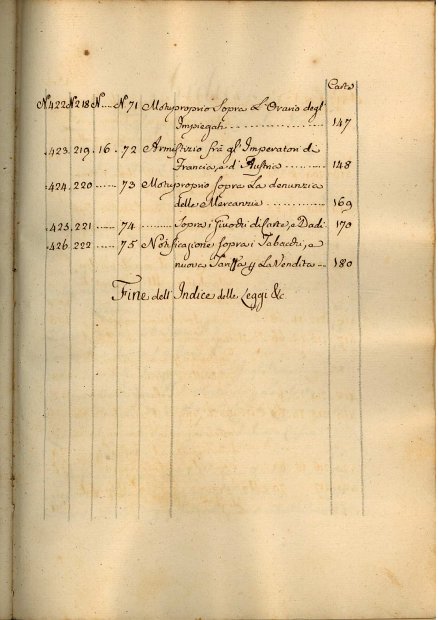 Carte
N. 422 N. 218 N. .... N. 71 Motuproprio sopra L'Orario degl'
Impiegati .................. 147
.. 423. 219. 16 . 72 Armistizio frà gl'Imperatori di
Francia, e d'Austria ........... 148
.. 424. 220 ...... 73 Motuproprio sopra La denunzia
delle Mercanzie ............ 169
.. 425. 221 ...... 74 ......... Sopra i Giuochi di Carte, e Dadi 170
.. 426. 222 ...... 75 Notificazione sopra i Tabacchi, e
nuova Tariffa p La Vendita ... 180
Fine dell'Indice delle Leggi &c.